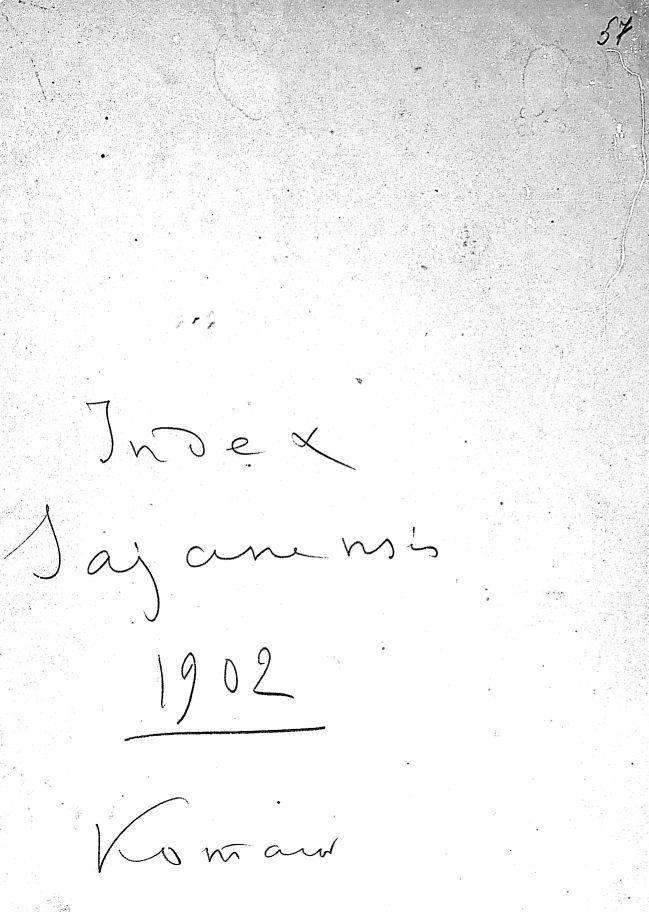 57
Index
Sajanensis
1902